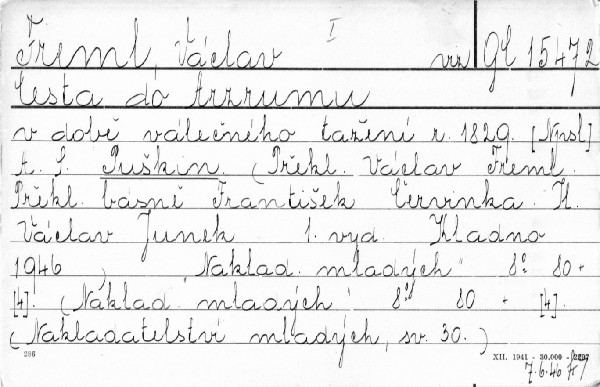 I
Freml, Václav vz GC 15472
Cesta do Arzrumu
v době válečného tažení r. 1829. [Napsl]
A. S. Puškin. (Překl. Václav Freml.
Překl. básně František Červinka. Il.
Václav Junek 1. vyd. Kladno
1946, "Naklad. mladých" 8° 80 +
[4]. (Naklad. mladých" 8° 80 + [4].
(Nakladatelství mladých, sv. 30.)
286 XII. 1941 - 30.000 - 2297
7.6.46